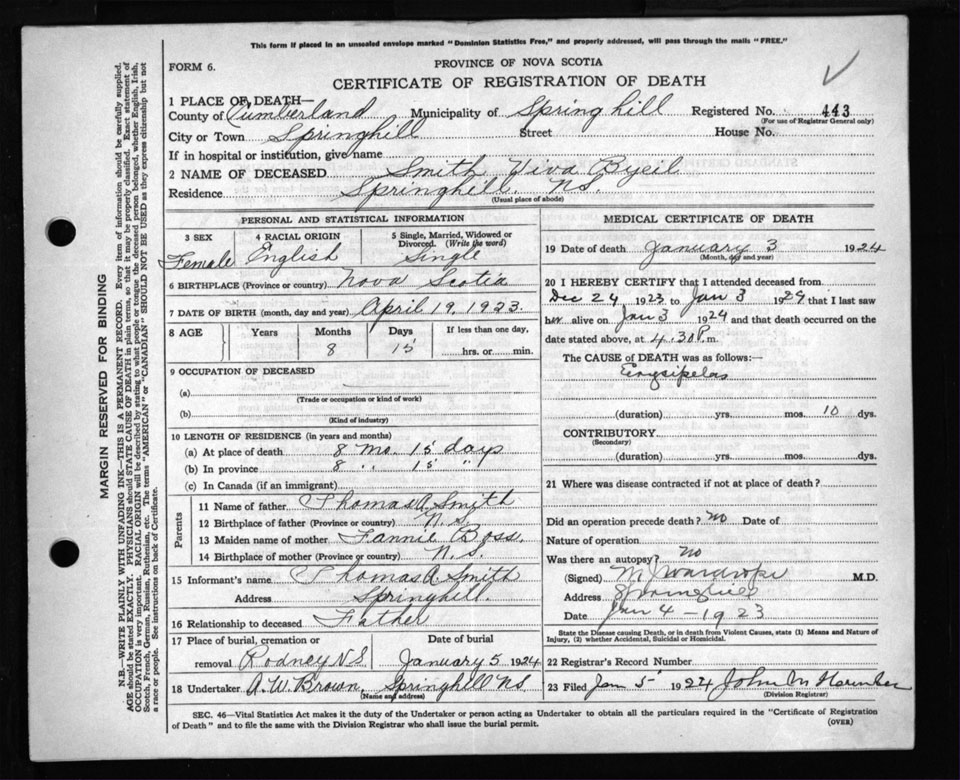 This form if placed in an unsealed envelope marked "Dominion Statistics Free," and properly addressed, will pass through the mails "FREE."
FORM 6.
PROVINCE OF NOVA SCOTIA
CERTIFICATE OF REGISTRATION OF DEATH
1 PLACE OF DEATH—
County of Cumberland Municipality of Springhill Registered No. 443
(For use of Registrar General only)
City or Town Springhill Street House No.
If in hospital or institution, give name
2 NAME OF DECEASED Smith Viva
Residence Springhill. N.S.
(Usual place of abode)
PERSONAL AND STATISTICAL INFORMATION
3 SEX 4 RACIAL ORIGIN 5 Single, Married, Widowed or Divorced. (Write the word)
Female English Single
6 BIRTHPLACE (Province or country) Nova Scotia
7 DATE OF BIRTH (month, day and year) April 19, 1923.
8 AGE Years Months Days If less than one day,
8 15 hrs. or min.
9 OCCUPATION OF DECEASED
(a)
(Trade or occupation or kind of work)
(b)
(Kind of industry)
10 LENGTH OF RESIDENCE (in years and months)
(a) At place of death 8 mo. 15 days
(b) In province 8 " 15 "
(c) In Canada (if an immigrant)
Parents
11 Name of father Thomas A. Smith
12 Birthplace of father (Province or country) N.S.
13 Maiden name of mother Fannie Boss.
14 Birthplace of mother (Province or country) N.S.
15 Informant's name Thomas A. Smith
Address Springhill.
16 Relationship to deceased Father
17 Place of burial, cremation or removal Rodney N.S Date of burial January 5 1924
18 Undertaker A. W. Brown, Springhill N.S.
(Name and address)
MEDICAL CERTIFICATE OF DEATH
19 Date of death January 3 1924
(Month, day and year)
20 I HEREBY CERTIFY that I attended deceased from
Dec 24, 1923 to Jan 3 1924 that I last saw
her alive on Jan 3 1924 and that death occurred on the
date stated above, at 4.30 P.m.
The CAUSE OF DEATH was as follows:—
Erysipelas
(duration) yrs. mos. 10 dys.
CONTRIBUTORY
(Secondary)
(duration) yrs. mos. dys.
21 Where was disease contracted if not at place of death?
Did an operation precede death? No Date of
Nature of operation
Was there an autopsy? No
(Signed) M. Wardrope M.D.
Address Springhill
Date Jan 4 - 1923
State the Disease causing Death, or in death from Violent Causes, state (1) Means and Nature of Injury, (2) whether Accidental, Suicidal or Homicidal.
22 Registrar's Record Number
23 Filed Jan 5 1924 John M
(Division Registrar)
SEC. 46—Vital Statistics Act makes it the duty of the Undertaker or person acting as Undertaker to obtain all the particulars required in the "Certificate of Registration
of Death" and to file the same with the Division Registrar who shall issue the burial permit.
(OVER)
MARGIN RESERVED FOR BINDING
N.B.—WRITE PLAINLY WITH UNFADING INK—THIS IS A PERMANENT RECORD. Every item of information should be carefully supplied.
AGE should be stated EXACTLY. PHYSICIANS should STATE CAUSE OF DEATH in plain terms, so that it may be properly classified. Exact statement of
OCCUPATION is very important. RACIAL ORIGIN will be described by stating to what people or tongue the deceased person belonged, whether English, Irish,
Scotch, French, German, Russian, Ruthenian, etc. The terms "AMERICAN" or "CANADIAN" SHOULD NOT BE USED as they express citizenship but not
a race or people. See instructions on back of Certificate.